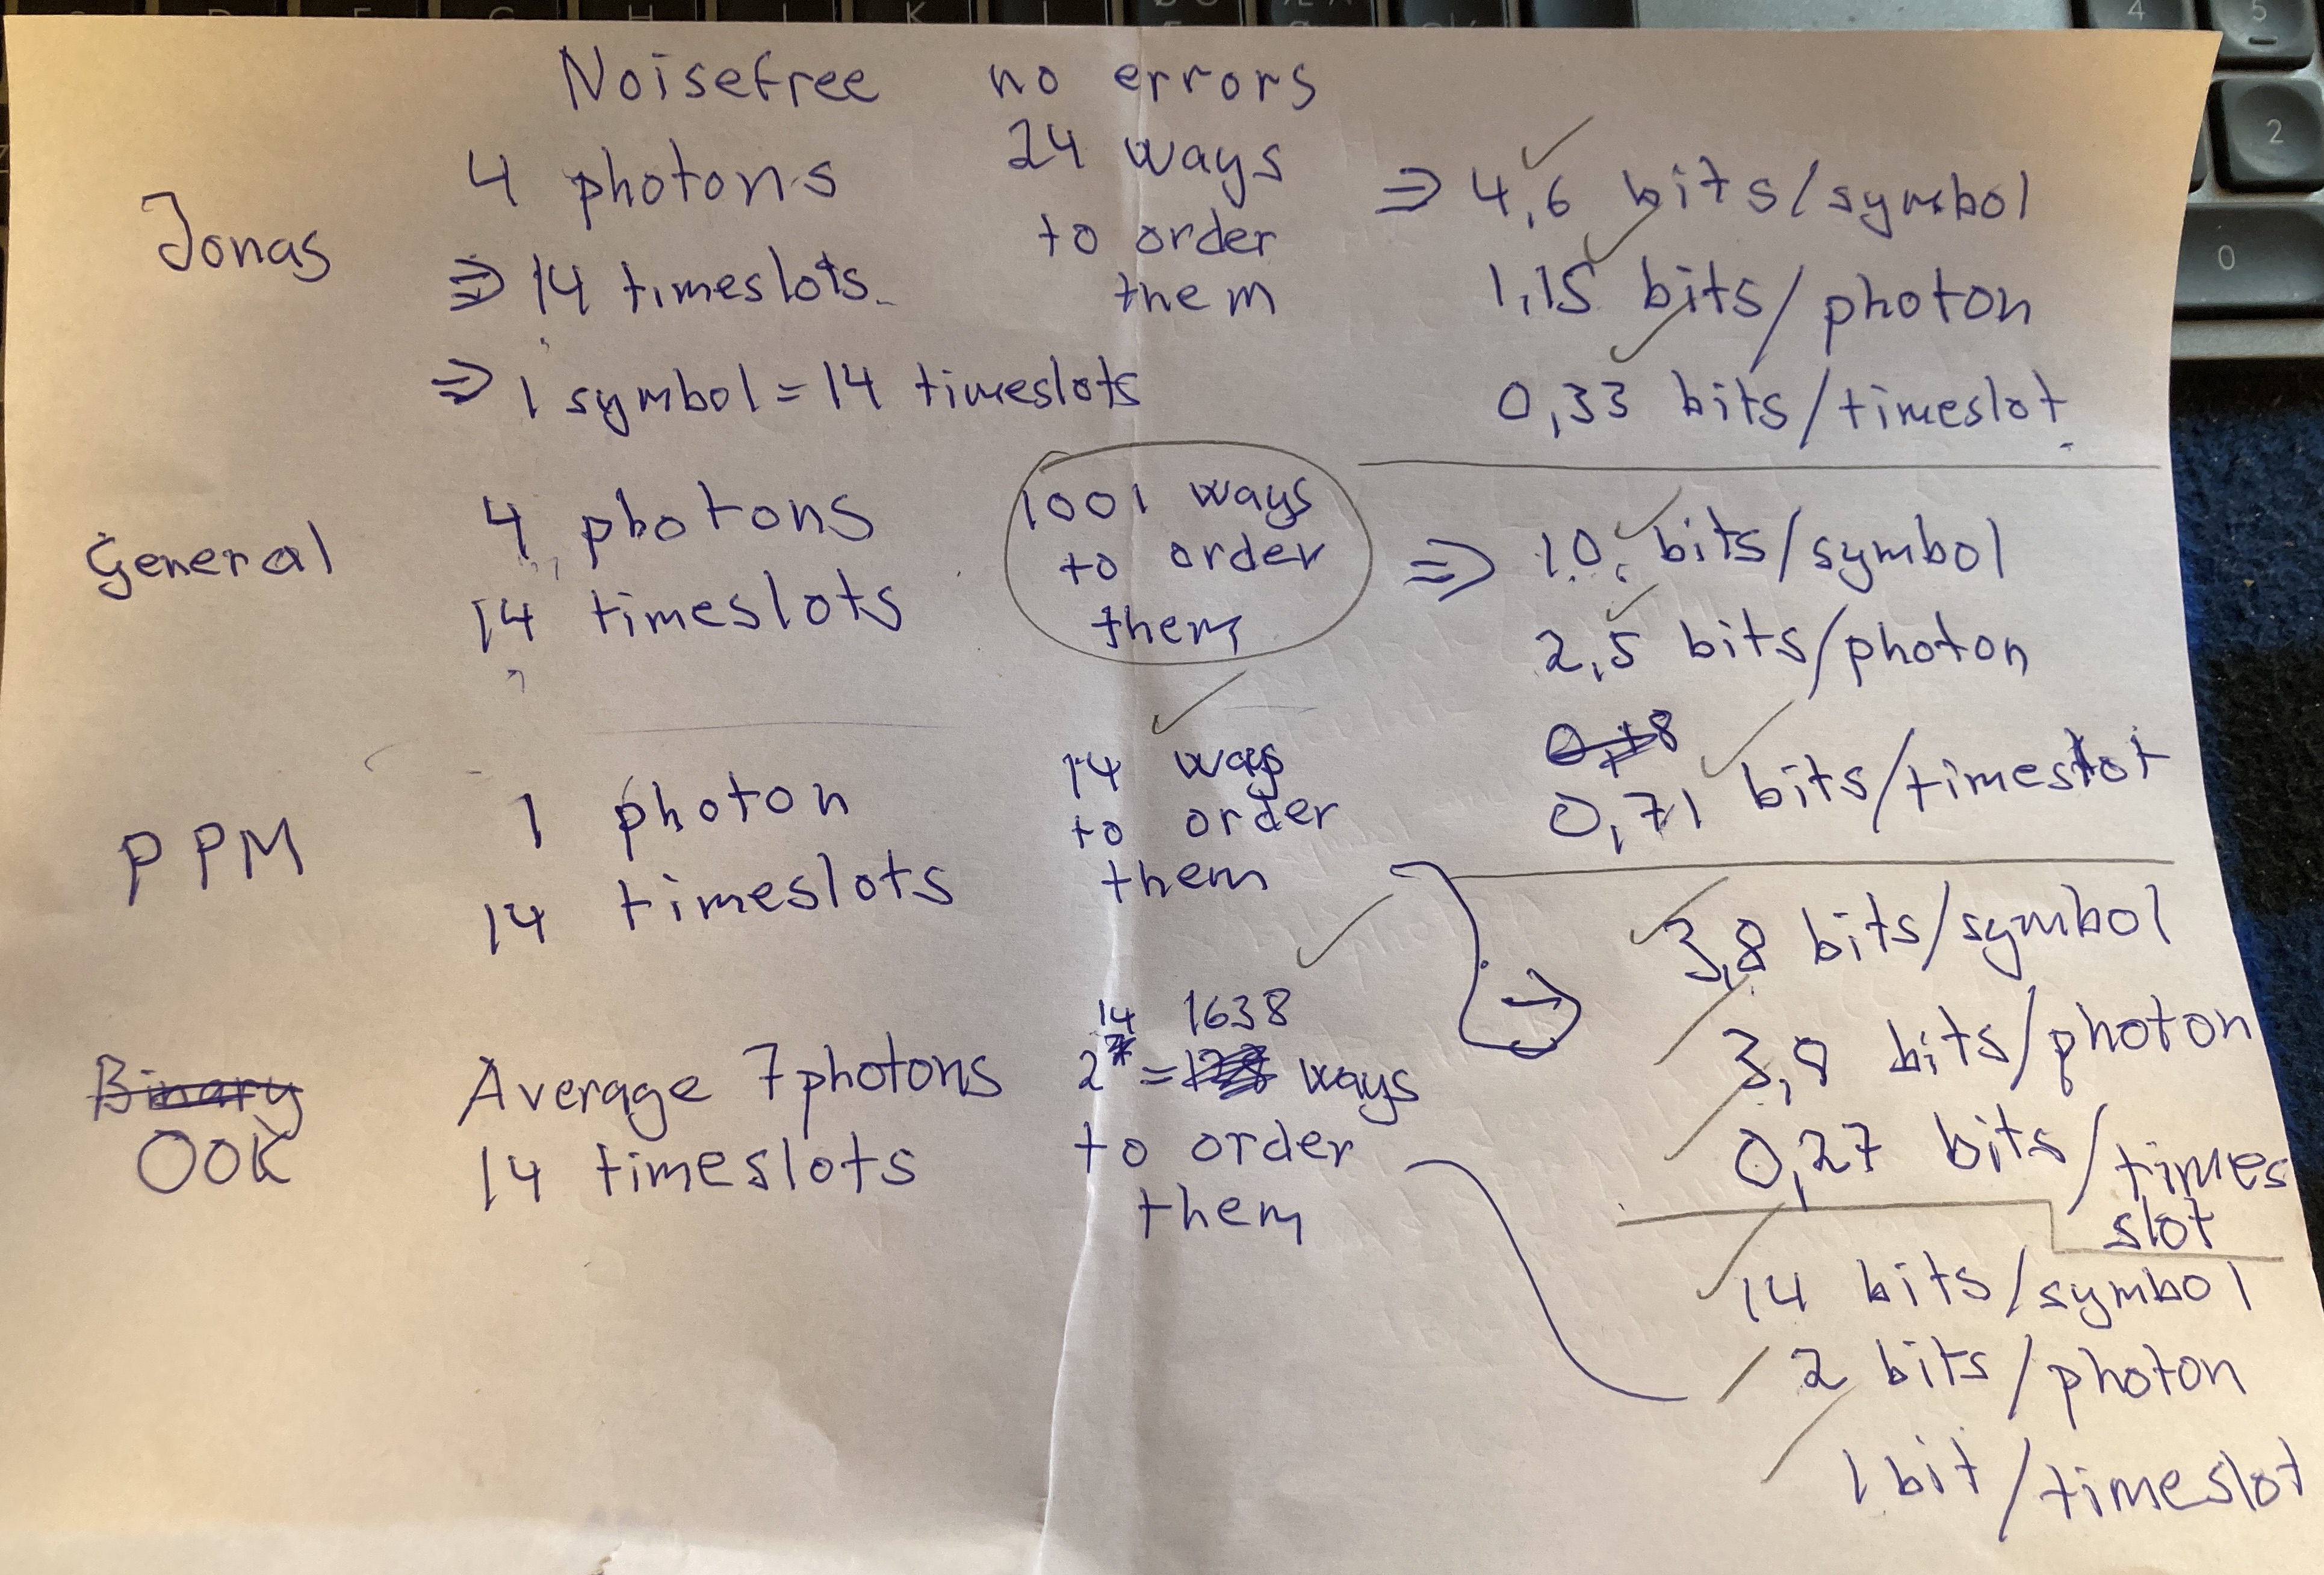 Noisefree no errors
Jonas
4 photons
⇒ 14 timeslots
⇒ 1 symbol = 14 timeslots
24 ways
to order
them
⇒ 4,6 bits/symbol
1,15 bits/photon
0,33 bits/timeslot
General
4 photons
14 timeslots
1001 ways
to order
them
⇒ 10, bits/symbol
2,5 bits/photon
0,71 bits/timeslot
PPM
1 photon
14 timeslots
14 ways
to order
them
→ 3,8 bits/symbol
3,8 bits/photon
0,27 bits/times
slot
Binary
OOK
Average 7 photons
14 timeslots
2^14 = 1638 ways
to order
them
14 bits/symbol
2 bits/photon
1 bit/timeslot
4
5
2
0